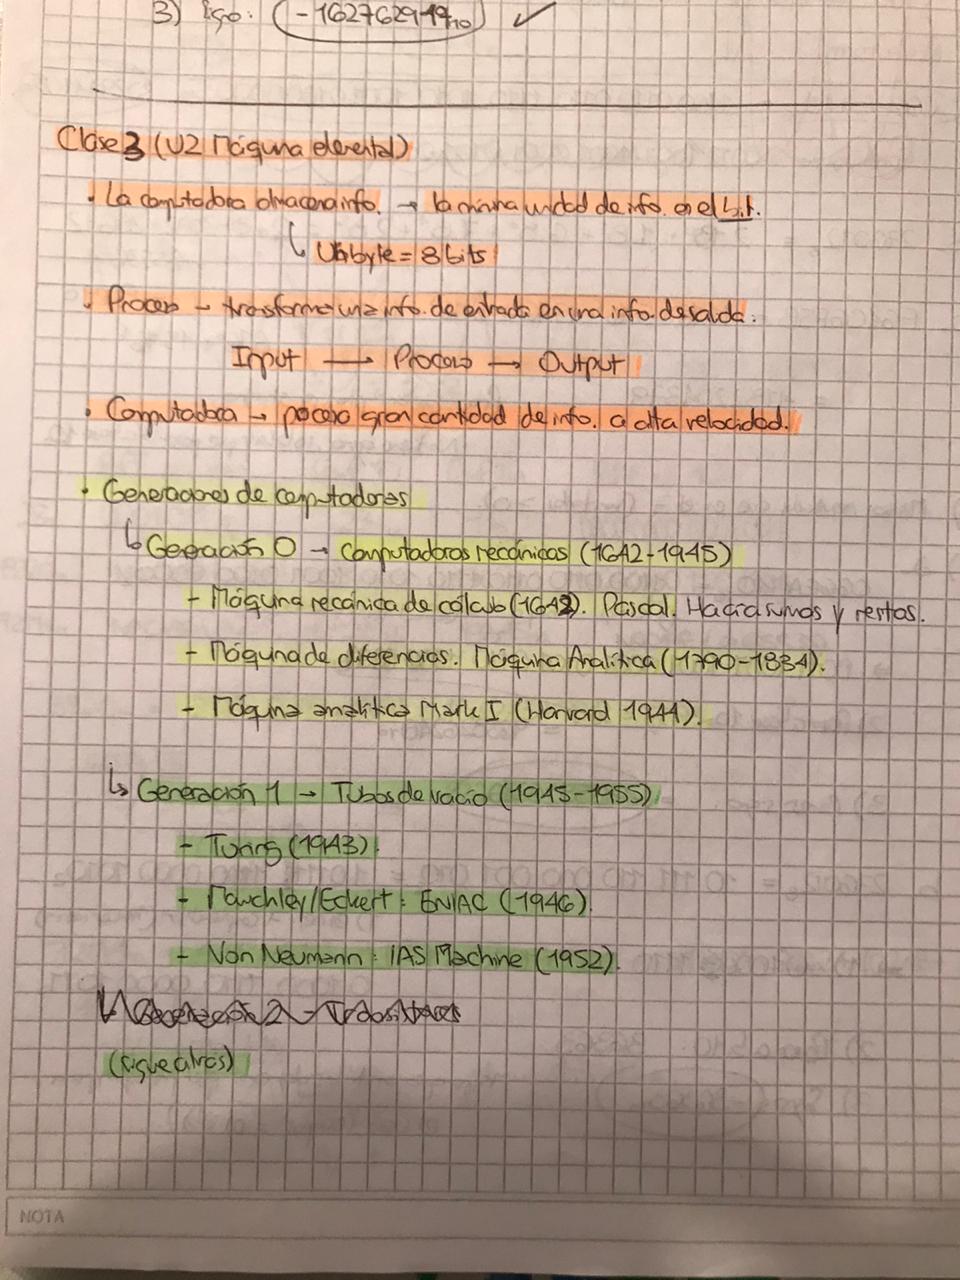 3) Signo: (-1627629149₁₀) ✓
Clase 3 (U2 Máquina elemental)
· La computadora almacena info. → la mínima unidad de info. es el bit.
↳ Un byte = 8 bits
· Proceso → transforma una info. de entrada en una info. de salida.
Input → Proceso → Output
· Computadora → proceso gran cantidad de info. a alta velocidad.
· Generaciones de computadores
↳ Generación 0 → Computadoras mecánicas (1642-1945)
- Máquina mecánica de cálculo (1642). Pascal. Hacía sumas y restas.
- Máquina de diferencias. Máquina Analítica (1790-1834).
- Máquina analítica Mark I (Harvard 1944).
↳ Generación 1 → Tubos de vacío (1945-1955)
- Turing (1943).
- Mauchley/Eckert: ENIAC (1946).
- Von Neumann: IAS Machine (1952).
↳ Generación 2 → Transistores
(sigue atrás)
NOTA